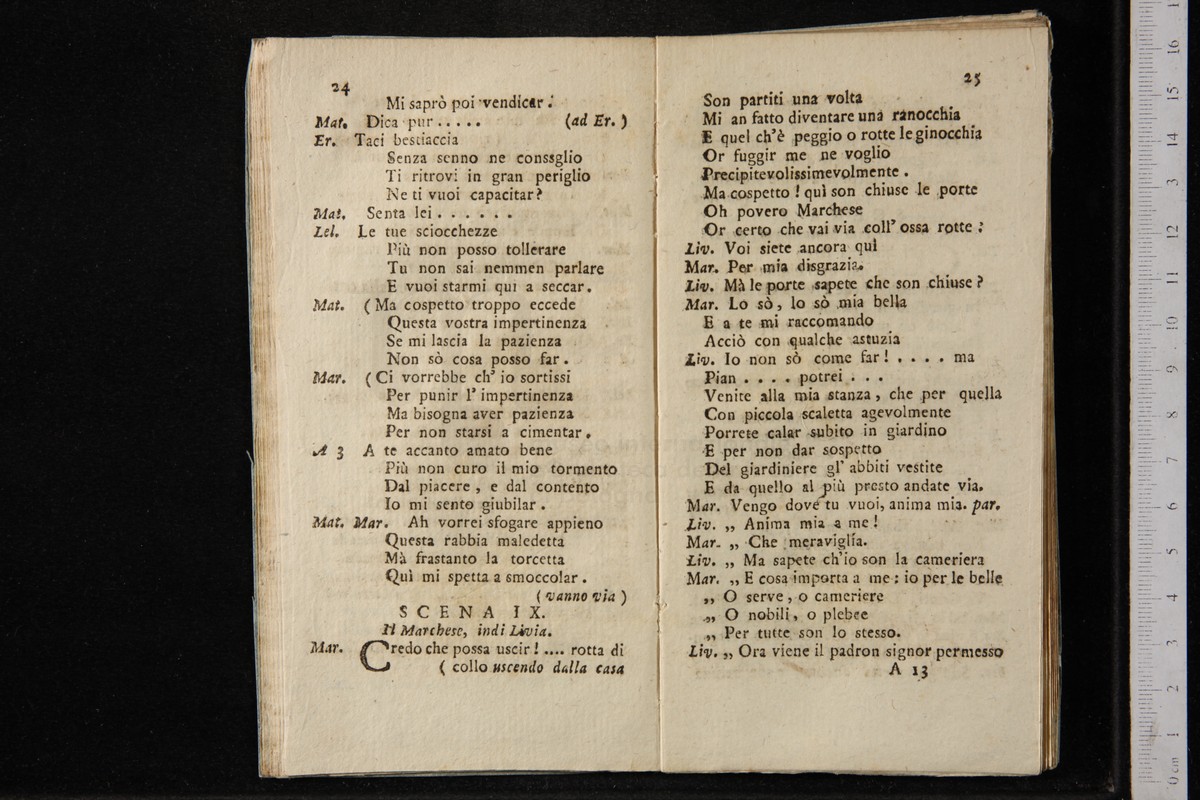 24
Mi saprò poi vendicar.
Mat. Dica pur ..... (ad Er.)
Er. Taci bestiaccia
Senza senno ne conssglio
Ti ritrovi in gran periglio
Ne ti vuoi capacitar?
Mat. Senta lei......
Lel. Le tue sciocchezze
Più non posso tollerare
Tu non sai nemmen parlare
E vuoi starmi qui a seccar.
Mat. (Ma cospetto troppo eccede
Questa vostra impertinenza
Se mi lascia la pazienza
Non sò cosa posso far.
Mar. (Ci vorrebbe ch' io sortissi
Per punir l' impertinenza
Ma bisogna aver pazienza
Per non starsi a cimentar.
A 3 A te accanto amato bene
Più non curo il mio tormento
Dal piacere, e dal contento
Io mi sento giubilar.
Mat. Mar. Ah vorrei sfogare appieno
Questa rabbia maledetta
Mà frastanto la torcetta
Quì mi spetta a smoccolar.
(vanno via)
SCENA IX.
Il Marchese, indi Livia.
Mar. Credo che possa uscir! .... rotta di
(collo uscendo dalla casa
25
Son partiti una volta
Mi an fatto diventare una ranocchia
E quel ch'è peggio o rotte le ginocchia
Or fuggir me ne voglio
Precipitevolissimevolmente.
Ma cospetto! quì son chiuse le porte
Oh povero Marchese
Or certo che vai via coll' ossa rotte:
Liv. Voi siete ancora quì
Mar. Per mia disgrazia.
Liv. Mà le porte sapete che son chiuse?
Mar. Lo sò, lo sò mia bella
E a te mi raccomando
Acciò con qualche astuzia
Liv. Io non sò come far! .... ma
Pian .... potrei ...
Venite alla mia stanza, che per quella
Con piccola scaletta agevolmente
Porrete calar subito in giardino
E per non dar sospetto
Del giardiniere gl' abbiti vestite
E da quello al più presto andate via.
Mar. Vengo dove tu vuoi, anima mia. par.
Liv. „ Anima mia a me!
Mar. „ Che meraviglia.
Liv. „ Ma sapete ch'io son la cameriera
Mar. „ E cosa importa a me: io per le belle
„ O serve, o cameriere
„ O nobili, o plebee
„ Per tutte son lo stesso.
Liv. „ Ora viene il padron signor permesso
A 13
0 cm 1 2 3 4 5 6 7 8 9 10 11 12 13 14 15 16